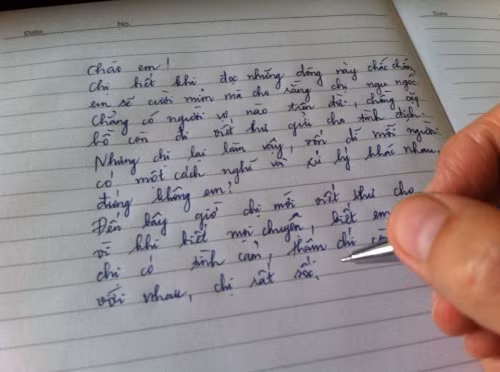 Date No.
Date
Chào em!
Chị biết khi đọc những dòng này chắc chắn
em sẽ cười mỉm mà cho rằng chị ngu ngốc
Chẳng có người vợ nào trên đời, chồng cặp
bồ còn đi viết thư gửi cho tình địch.
Nhưng chị lại làm vậy, vốn dĩ mỗi người
có một cách nghĩ và xử lý khác nhau
đúng không em?
Đến bây giờ chị mới viết thư cho
vì khi biết mọi chuyện, biết em
chị có tình cảm, thậm chí
với nhau, chị rất sốc.